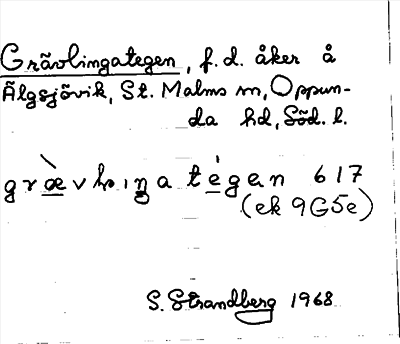 Grävlingategen, f.d. åker å
Älgsjövik, St. Malms sn, Oppun-
da hd, Söd. l.
grævlıŋa tegen 617
(ek 9G5e)
S. Strandberg 1968